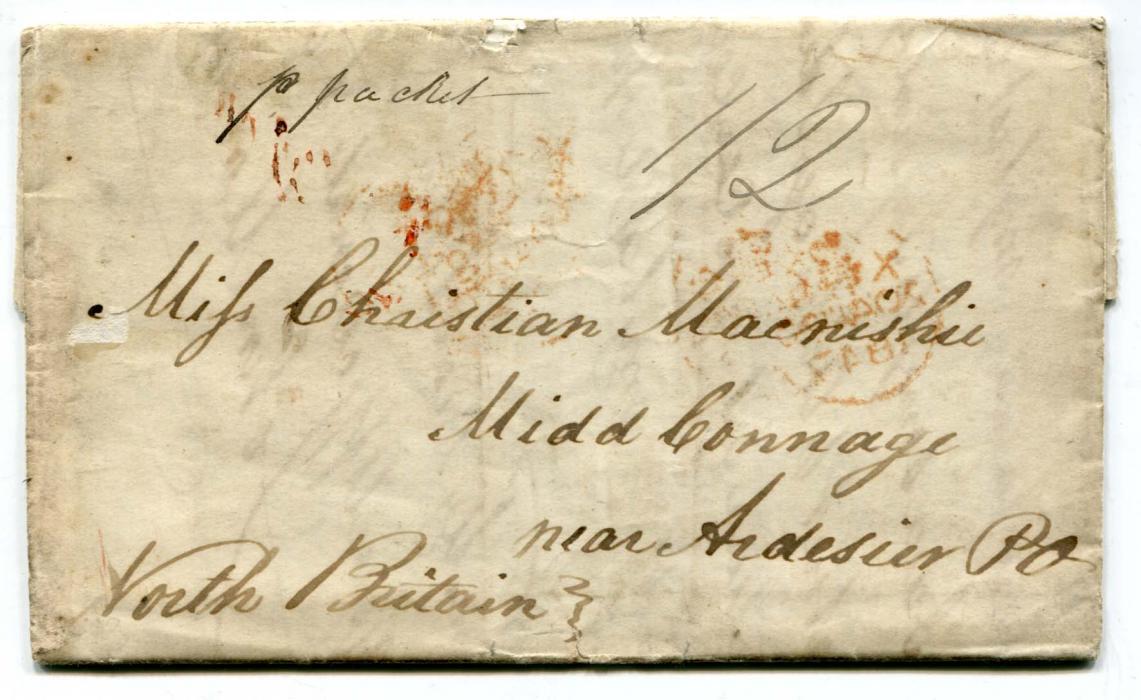 p packet
1/2
Miſs Christian Macnishie
Midd Connage
near Ardesier PO
North Britain
1847